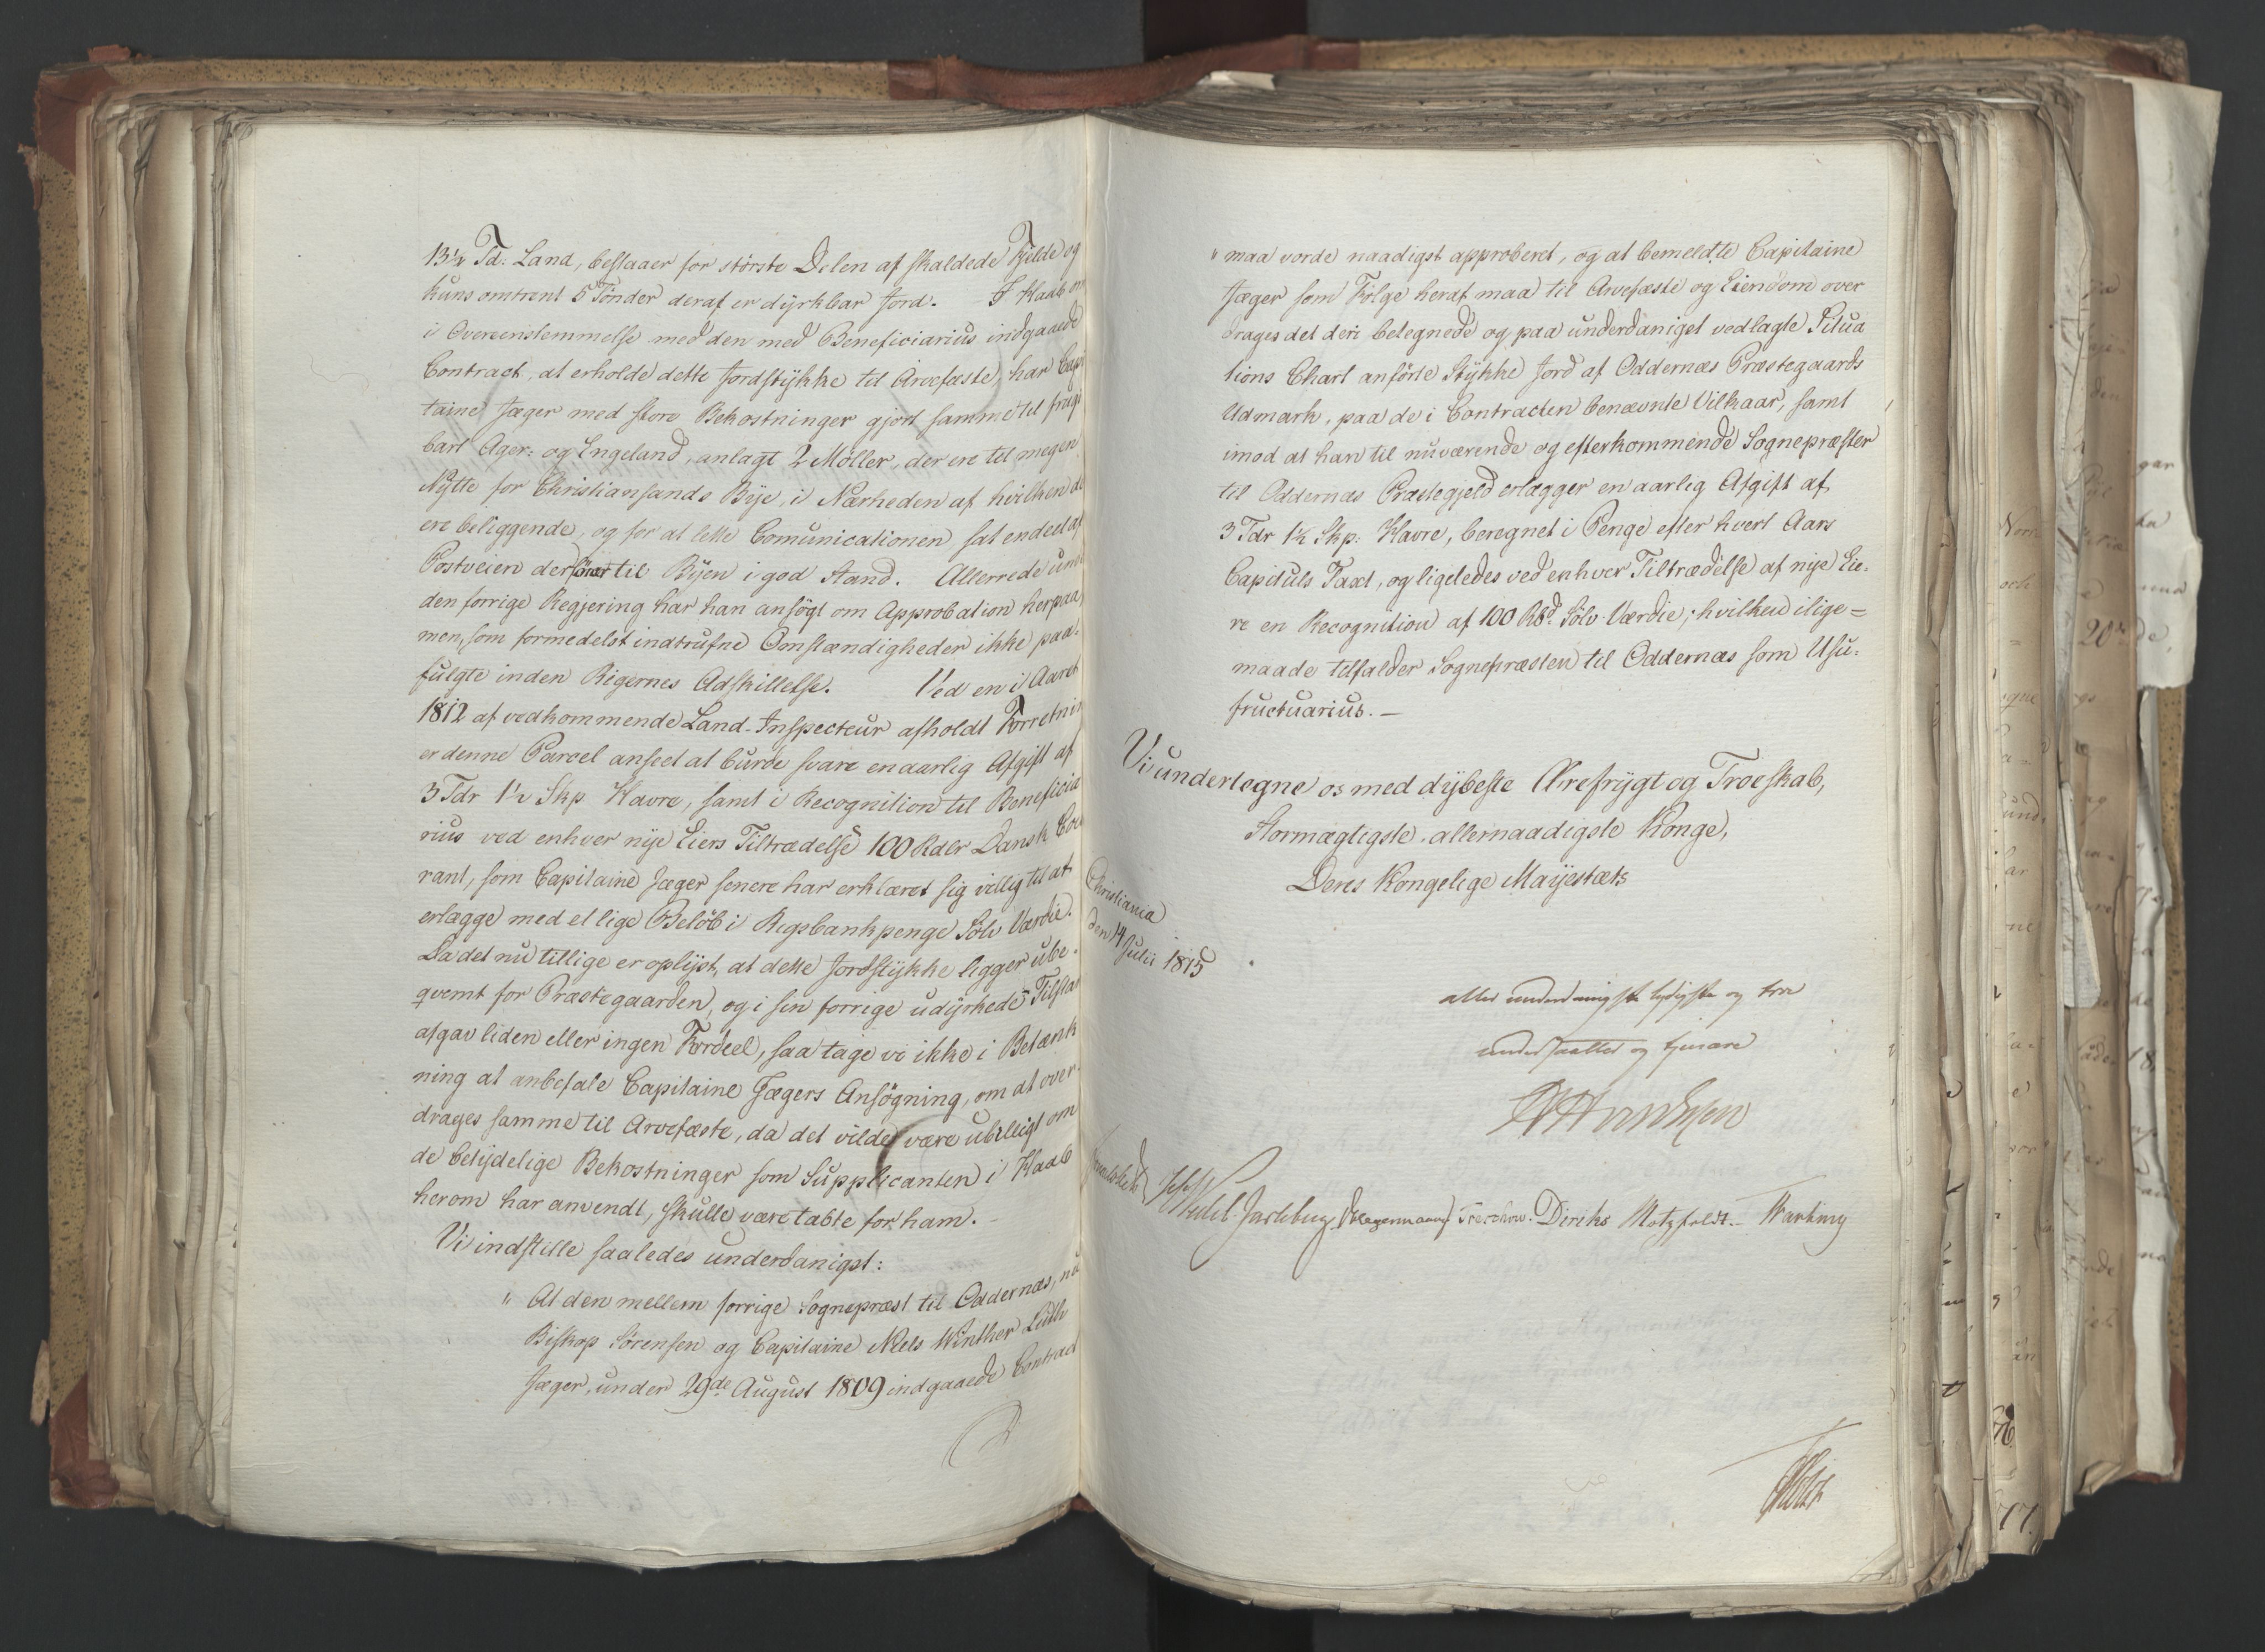 13½ Td: Land, bestaaer for störste Delen af skaldede Fjelde og
kuns omtrent 5 Tönder deraf er dÿrkbar Jord. I Haab om
i Overeenstemmelse med den med Beneficiarius indgaaede
Contract, at erholde dette Jordstÿkke til Arvefæste, har Capi
taine Jæger med store Bekostninger gjort samme til frugt
bart Ager- og Engeland, anlagt 2 Möller, der ere til megen
Nÿtte for Christiansands Bÿe, i Nærheden af hvilken de
ere beliggende, og for at lette Comunicationen sat endeel af
Postveien der förer til Bÿen i god Stand. Allerrede under
den forrige Regjering har han ansögt om Approbation herpaa,
men, som formedelst indtrufne Omstændigheder ikke paa-
fulgte inden Rigernes Adskillelse. Ved en i Aaret
1812 af vedkommende Land-Inspecteur afholdt Forretning
er denne Parcel anseet at burde svare en aarlig Afgift af
3 Tdr 1½ Skp Havre, samt i Recognition til Beneficia
rius ved enhver nÿe Eiers Tiltrædelse 100 Rdlr Dansk Cou
rant, som Capitaine Jæger senere har erklæret sig villig til at
erlægge med et lige Belöb i Rigsbankpenge Sölv Værdie.
Da det nu tillige er oplÿst, at dette Jordstÿkke ligger ube-
qvemt for Præstegaarden, og i sin forrige udÿrkede Tilstand
afgav liden eller ingen Fordeel, saa tage vi ikke i Betænk
ning at anbefale Capitaine Jægers Ansögning, om at over-
drages samme til Arvefæste, da det vilde være ubilligt om
de betÿdelige Bekostninger som Supplicanten i Haab
herom har anvendt, skulle være tabte for ham. –
Vi indstille saaledes underdanigst:
" At den mellem forrige Sognepræst til Oddernæs, nu
Biskop Sörensen og Capitaine Niels Winther Luth
Jæger, under 29de August 1809 indgaaede Contract
" maa vorde naadigst approberet, og at bemeldte Capitaine
Jæger som Fölge heraf maa til Arvefæste og Eiendom over
drages det deri betegnede og paa underdanigst vedlagte Situa
tions Chart anförte Stÿkke Jord af Oddernæs Præstegaards
Udmark, paa de i Contracten benævnte Vilkaar, samt
imod at han til nuværende og efterkommende Sognepræster
til Oddernæs Præstegjeld erlægger en aarlig Afgift af
3 Tdr 1½ Skp: Havre, beregnet i Penge efter hvert Aars
Capituls Taxt, og ligeledes ved enhver Tiltrædelse af nÿe Eie-
re en Recognition af 100 Rbd. Sölv Værdie; hvilken ilige=
maade tilfalder Sognepræsten til Oddernæs som Usu-
fructuarius. –
Vi undertegne os med dÿbeste Ærefrÿgt og Troeskab,
Stormægtigste, allernaadigste Konge,
Deres Kongelige Maÿestæts
Christiania
den 14 Julii 1815
allerunderdanigste lydigste og troe
undersaatter og tjenere
Wedel Jarlsberg Hegermann Treschow. Diriks Motzfeldt.